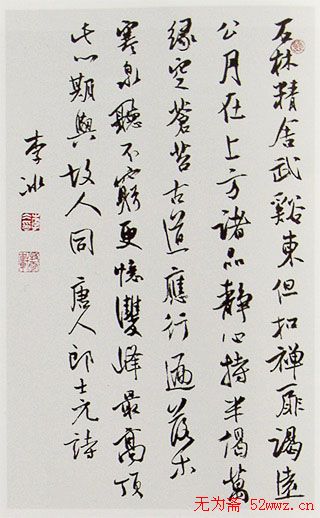 石林精舍武谿東但扣禪扉謁遠
公月在上方諸品靜心持半偈萬
緣空蒼苔古道應行遍落木
寒泉聽不窮更憶雙峰最高頂
此心期與故人同 唐人郎士元詩
李冰
无为斋 52wwz.cn